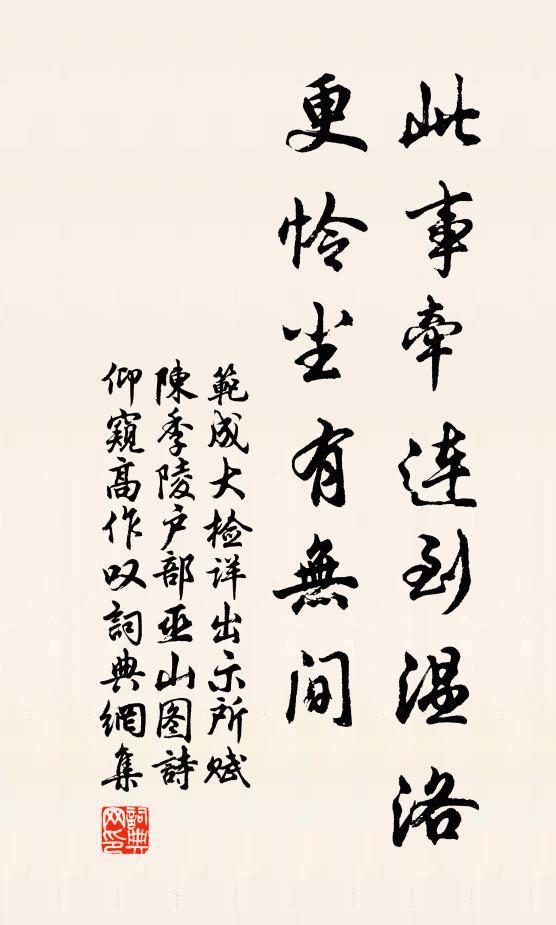 此事牵连到温洛
更怜尘有無间
範成大检详出示所赋
陳季陵户部巫山图詩
仰窥高作叹詞典網集
詞典
网印